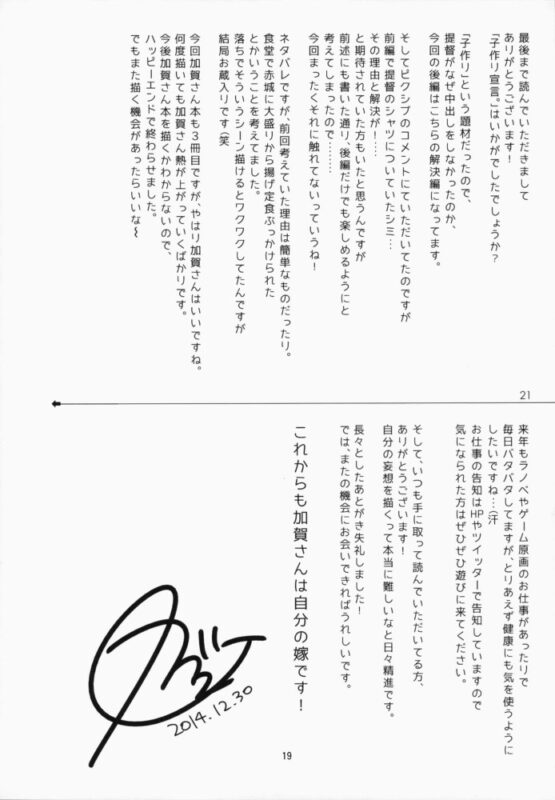 最後まで読んでいただきまして
ありがとうございます！
「子作り宣言。」はいかがでしたでしょうか？
「子作り」という題材だったので、
提督がなぜ中出しをしなかったのか、
今回の後編はこちらの解決編になってます。
そしてピクシブのコメントにていただいてたのですが
前編で提督のシャツについていたシミ…
その理由と解決が！…
と期待されていた方もいたと思うんですが
前述にも書いた通り、後編だけでも楽しめるようにと
考えてしまったので………
今回まったくそれに触れてないっていうね！
ネタバレですが、前回考えていた理由は簡単なものだったり。
食堂で赤城に大盛りから揚げ定食ぶっかけられた
とかいうことを考えてました。
落ちでそういうシーン描けるとワクワクしてたんですが
結局お蔵入りです(笑
今回加賀さん本も3冊目ですが、やはり加賀さんはいいですね。
何度描いても加賀さん熱が上がっていくばかりです。
今後加賀さん本を描くかわからないので、
ハッピーエンドで終わらせました。
でもまた描く機会があったらいいな～
21
来年もラノベやゲーム原画のお仕事があったりで
毎日バタバタしてますが、とりあえず健康にも気を使うように
したいですね…(汗
お仕事の告知はHPやツイッターで告知していますので
気になられた方はぜひぜひ遊びに来てください。
そして、いつも手に取って読んでいただいてる方、
ありがとうございます！
自分の妄想を描くって本当に難しいなと日々精進です。
長々としたあとがき失礼しました！
では、またの機会にお会いできればうれしいです。
これからも加賀さんは自分の嫁です！
2014.12.30
19